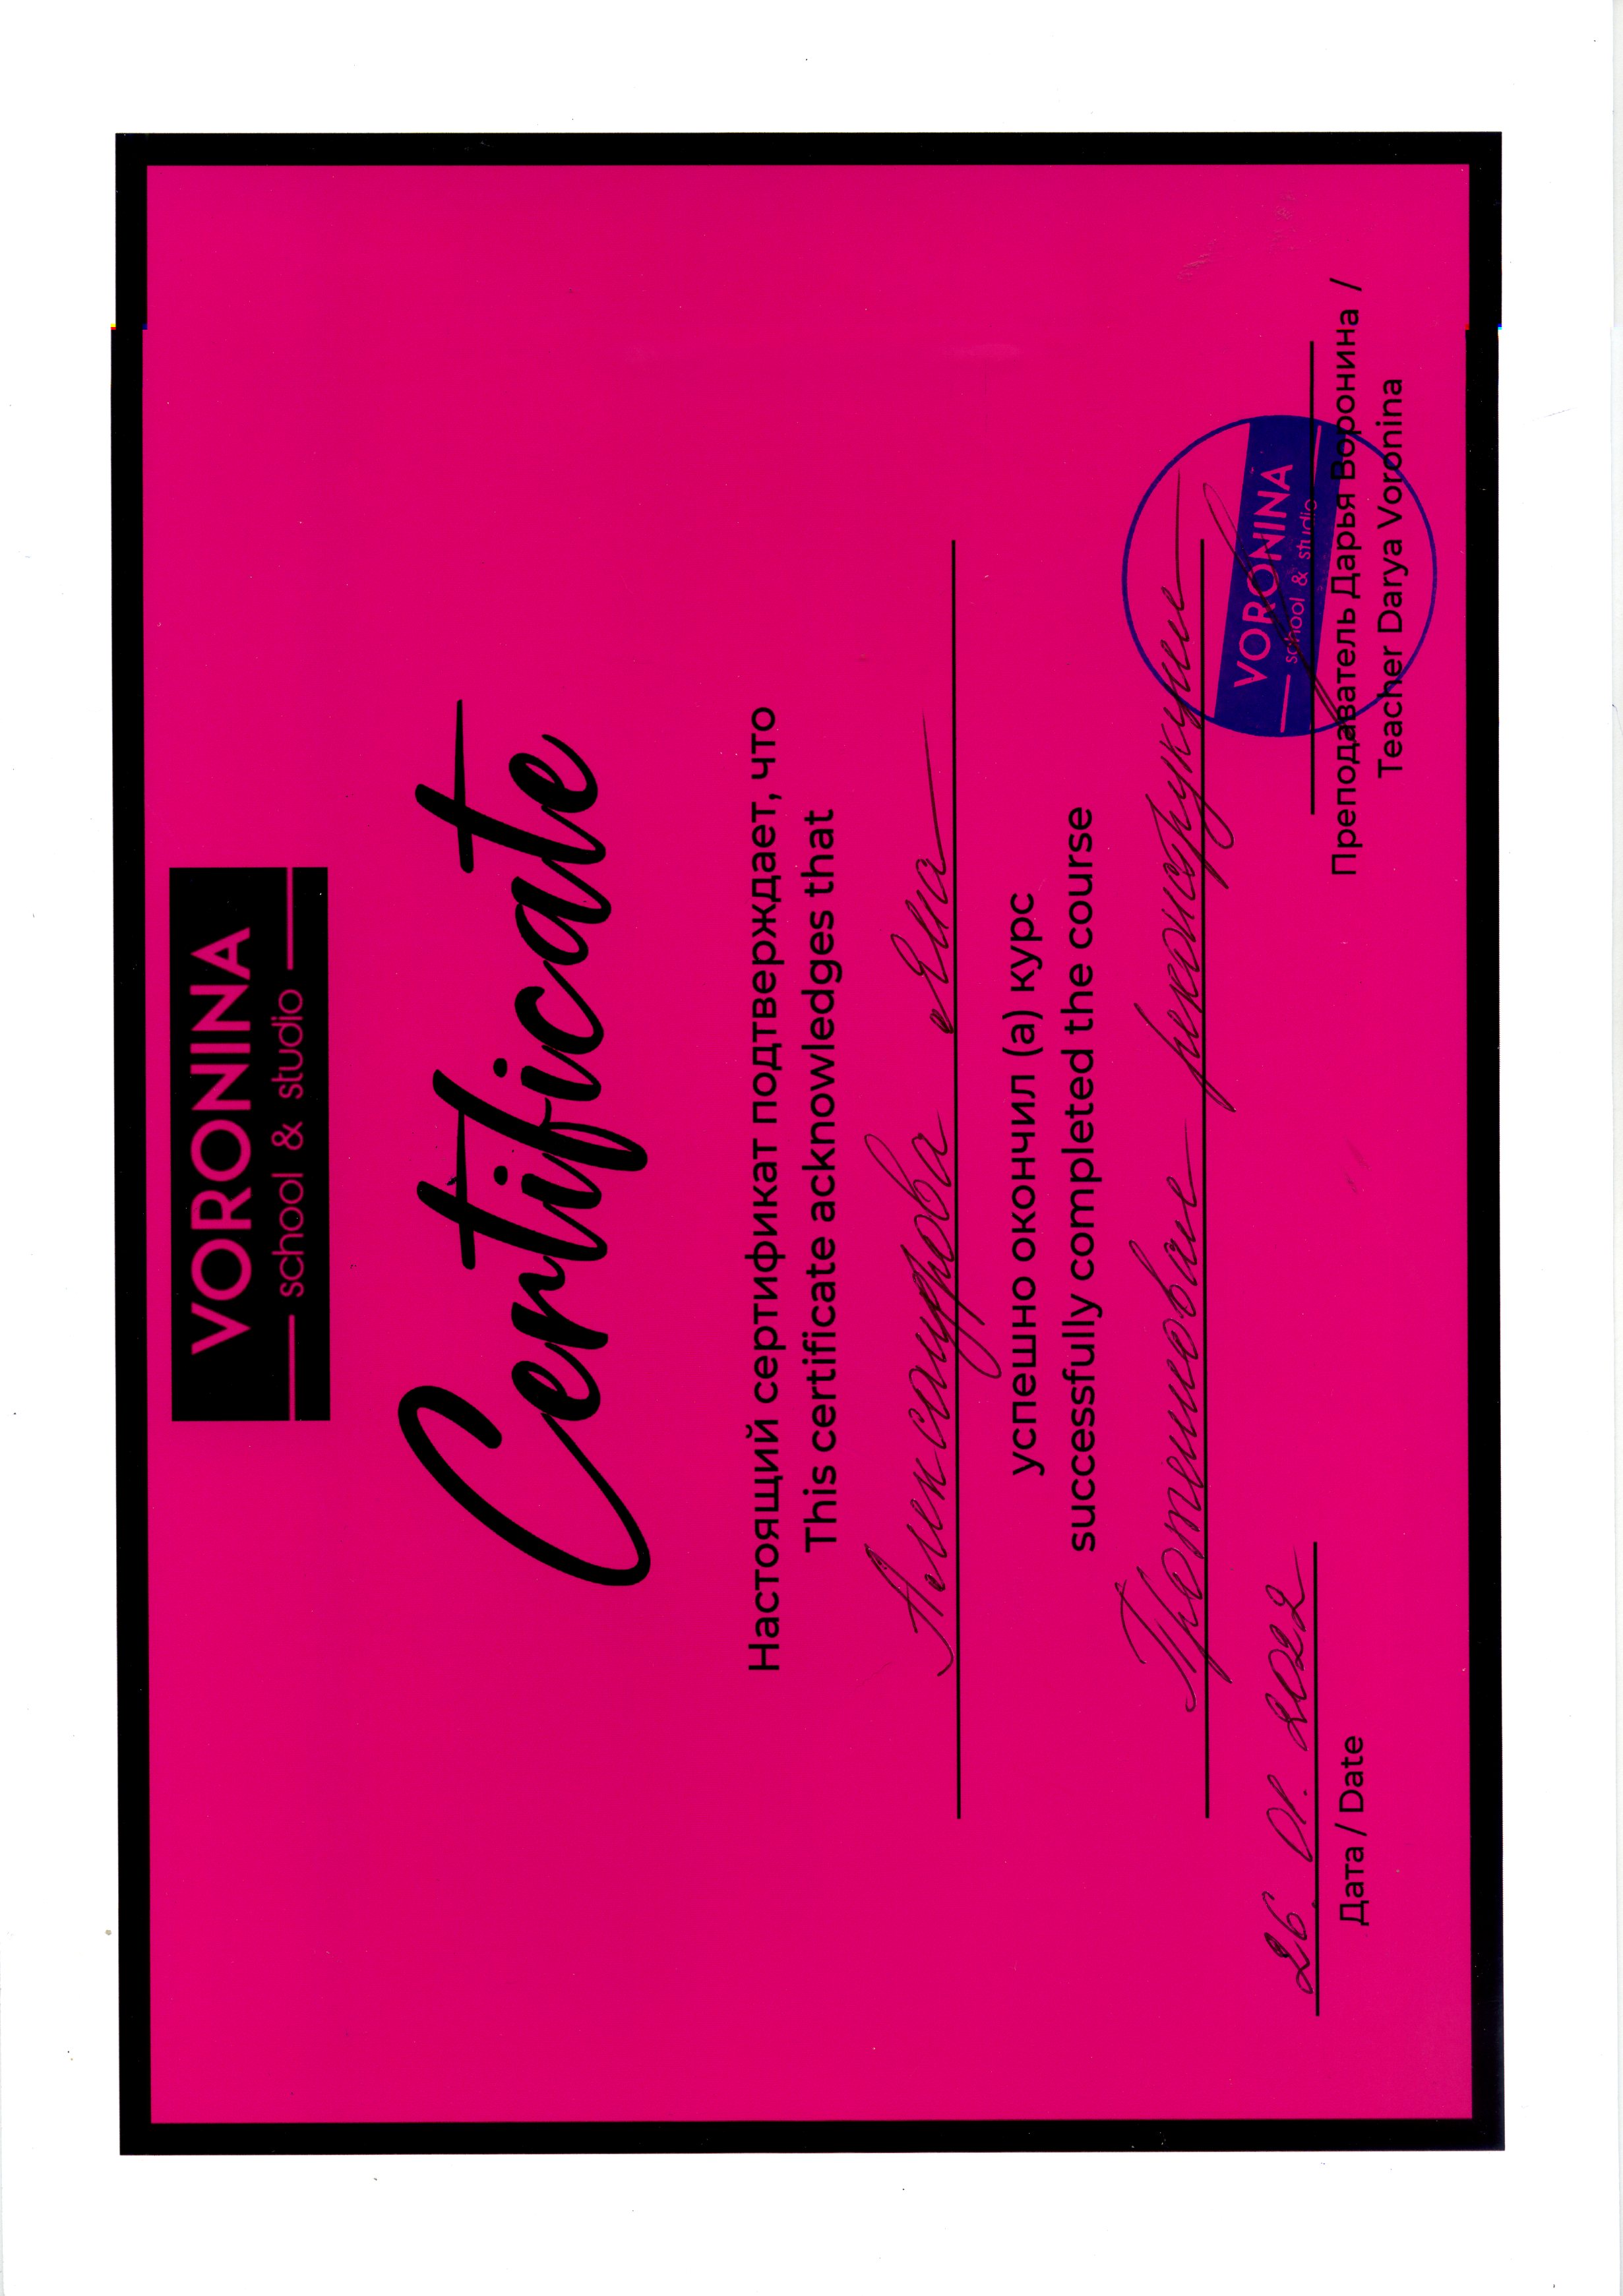 VORONINA
school & studio
Certificate
Настоящий сертификат подтверждает, что
This certificate acknowledges that
Александрова Яна
успешно окончил (а) курс
successfully completed the course
Кератиновые реконструкции
26. 01. 2022
Дата / Date
VORONINA
school & studio
Преподаватель Дарья Воронина /
Teacher Darya Voronina